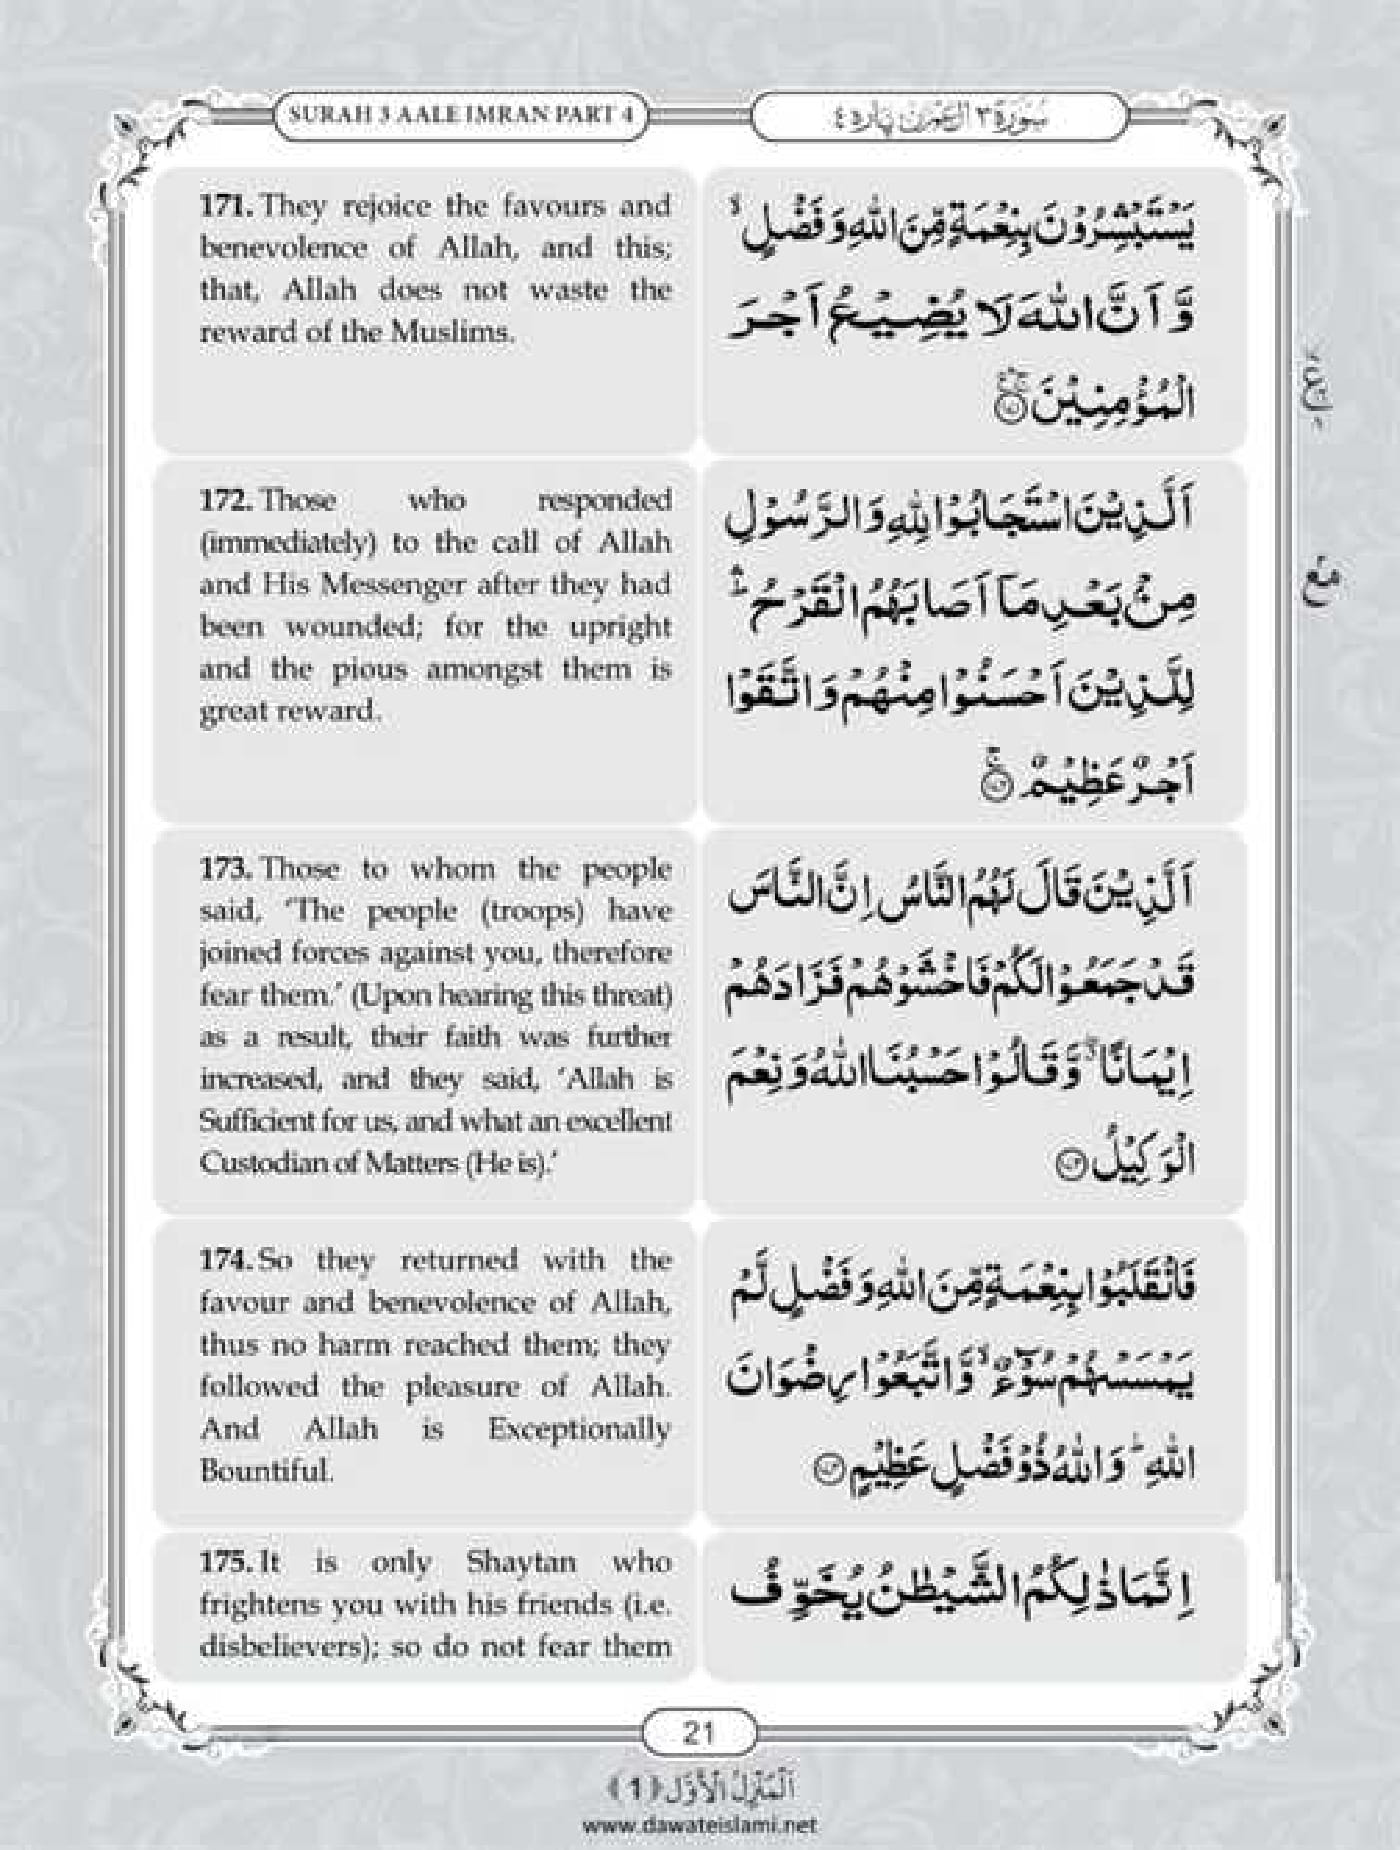 SURAH 3 AALE IMRAN PART 4
سُوْرَة ٣ اٰل عِمْرٰن پاره ٤
171. They rejoice the favours and
benevolence of Allah, and this;
that, Allah does not waste the
reward of the Muslims.
یَسْتَبْشِرُوْنَ بِنِعْمَةٍ مِّنَ اللّٰهِ وَ فَضْلٍ ۙ
وَّ اَنَّ اللّٰهَ لَا یُضِیْعُ اَجْرَ
الْمُؤْمِنِیْنَ ﴿۱۷۱﴾
172. Those who responded
(immediately) to the call of Allah
and His Messenger after they had
been wounded; for the upright
and the pious amongst them is
great reward.
اَلَّذِیْنَ اسْتَجَابُوْا لِلّٰهِ وَ الرَّسُوْلِ
مِنْۢ بَعْدِ مَاۤ اَصَابَهُمُ الْقَرْحُ ؕ
لِلَّذِیْنَ اَحْسَنُوْا مِنْهُمْ وَ اتَّقَوْا
اَجْرٌ عَظِیْمٌ ﴿۱۷۲﴾
173. Those to whom the people
said, 'The people (troops) have
joined forces against you, therefore
fear them.' (Upon hearing this threat)
as a result, their faith was further
increased, and they said, 'Allah is
Sufficient for us, and what an excellent
Custodian of Matters (He is).'
اَلَّذِیْنَ قَالَ لَهُمُ النَّاسُ اِنَّ النَّاسَ
قَدْ جَمَعُوْا لَكُمْ فَاخْشَوْهُمْ فَزَادَهُمْ
اِیْمَانًا ۖۗ وَّ قَالُوْا حَسْبُنَا اللّٰهُ وَ نِعْمَ
الْوَكِیْلُ ﴿۱۷۳﴾
174. So they returned with the
favour and benevolence of Allah,
thus no harm reached them; they
followed the pleasure of Allah.
And Allah is Exceptionally
Bountiful.
فَانْقَلَبُوْا بِنِعْمَةٍ مِّنَ اللّٰهِ وَ فَضْلٍ لَّمْ
یَمْسَسْهُمْ سُوْٓءٌ ۙ وَّ اتَّبَعُوْا رِضْوَانَ
اللّٰهِ ؕ وَ اللّٰهُ ذُوْ فَضْلٍ عَظِیْمٍ ﴿۱۷۴﴾
175. It is only Shaytan who
frightens you with his friends (i.e.
disbelievers); so do not fear them
اِنَّمَا ذٰلِكُمُ الشَّیْطٰنُ یُخَوِّفُ
21
اَلْمَنْزِلُ الْاَوَّل ﴿1﴾
www.dawateislami.net